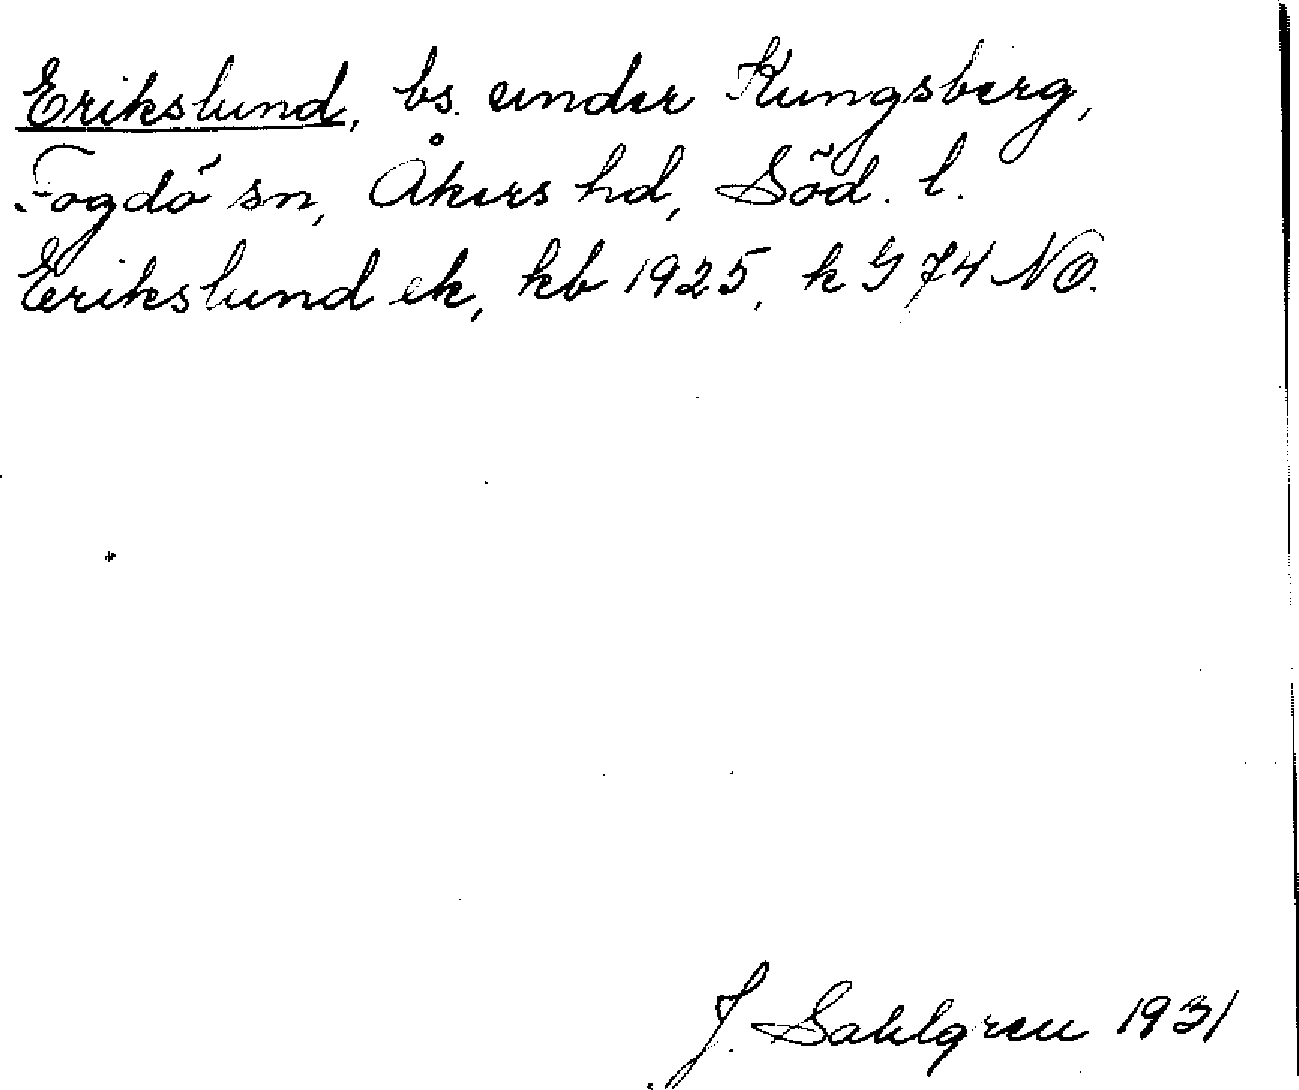 Erikslund, bs. under Kungsberg,
Fogdö sn, Åkers hd, Söd. l.
Erikslund ek, kb 1925, k G 74 NO.
J. Sahlgren 1931